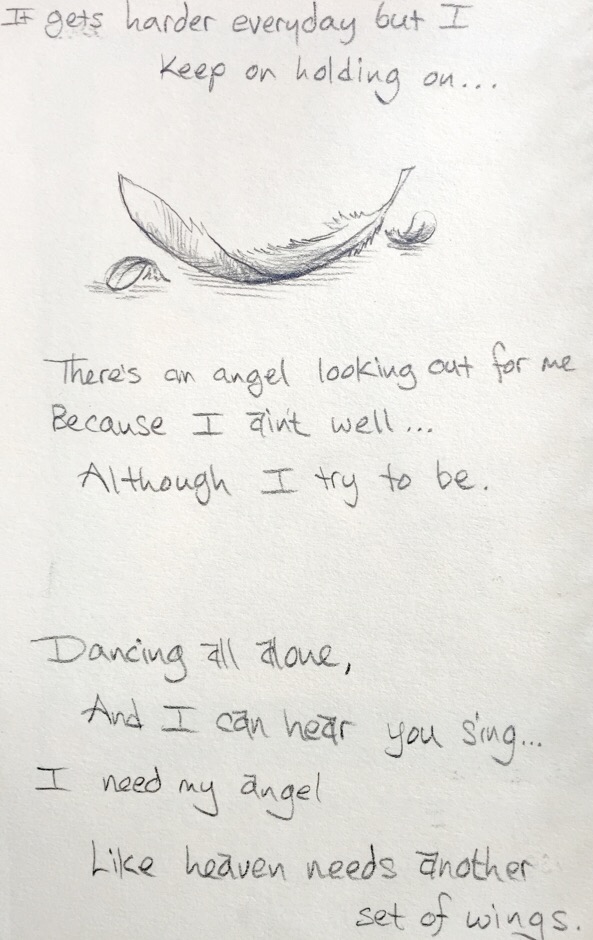 It gets harder everyday but I
Keep on holding on...
There's an angel looking out for me
Because I ain't well...
Although I try to be.
Dancing all alone,
And I can hear you sing...
I need my angel
Like heaven needs another
set of wings.